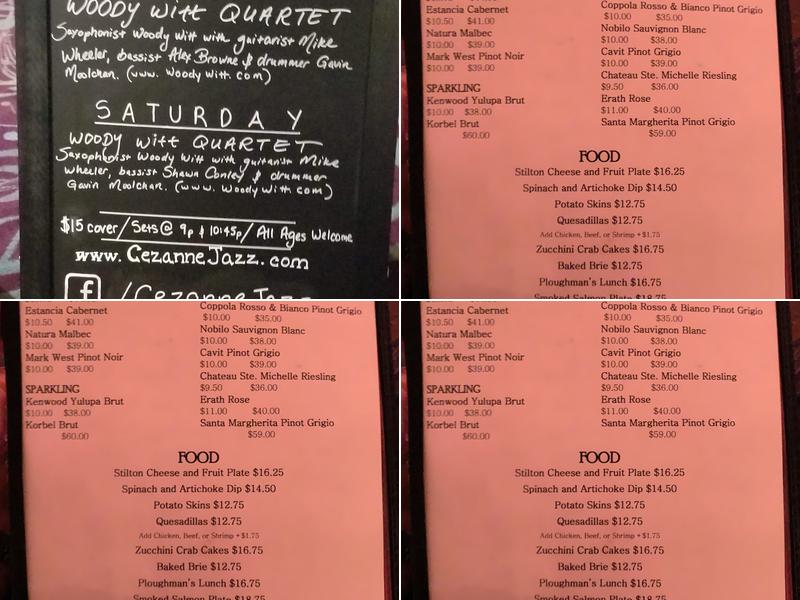 WOODY Witt QUARTET
Saxophonist Woody Witt with guitarist Mike
Wheeler, bassist Alex Browne & drummer Gavin
Moolchan. (www. WoodyWitt.com)
SATURDAY
WOODY Witt QUARTET
Saxophonist Woody Witt with guitarist Mike
Wheeler, bassist Shawn Conley & drummer
Gavin Moolchan. (www. WoodyWitt.com)
$15 cover/Sets@ 9p & 10:45p/All Ages Welcome
www. CezanneJazz.com
f /CezanneJazz
Estancia Cabernet
$10.50 $41.00
Natura Malbec
$10.00 $39.00
Mark West Pinot Noir
$10.00 $39.00
SPARKLING
Kenwood Yulupa Brut
$10.00 $38.00
Korbel Brut
$60.00
Coppola Rosso & Bianco Pinot Grigio
$10.00 $35.00
Nobilo Sauvignon Blanc
$10.00 $38.00
Cavit Pinot Grigio
$10.00 $39.00
Chateau Ste. Michelle Riesling
$9.50 $36.00
Erath Rose
$11.00 $40.00
Santa Margherita Pinot Grigio
$59.00
FOOD
Stilton Cheese and Fruit Plate $16.25
Spinach and Artichoke Dip $14.50
Potato Skins $12.75
Quesadillas $12.75
Add Chicken, Beef, or Shrimp +$1.75
Zucchini Crab Cakes $16.75
Baked Brie $12.75
Ploughman's Lunch $16.75
Smoked Salmon Plate $18.75
Estancia Cabernet
$10.50 $41.00
Natura Malbec
$10.00 $39.00
Mark West Pinot Noir
$10.00 $39.00
SPARKLING
Kenwood Yulupa Brut
$10.00 $38.00
Korbel Brut
$60.00
Coppola Rosso & Bianco Pinot Grigio
$10.00 $35.00
Nobilo Sauvignon Blanc
$10.00 $38.00
Cavit Pinot Grigio
$10.00 $39.00
Chateau Ste. Michelle Riesling
$9.50 $36.00
Erath Rose
$11.00 $40.00
Santa Margherita Pinot Grigio
$59.00
FOOD
Stilton Cheese and Fruit Plate $16.25
Spinach and Artichoke Dip $14.50
Potato Skins $12.75
Quesadillas $12.75
Add Chicken, Beef, or Shrimp +$1.75
Zucchini Crab Cakes $16.75
Baked Brie $12.75
Ploughman's Lunch $16.75
Smoked Salmon Plate $18.75
Estancia Cabernet
$10.50 $41.00
Natura Malbec
$10.00 $39.00
Mark West Pinot Noir
$10.00 $39.00
SPARKLING
Kenwood Yulupa Brut
$10.00 $38.00
Korbel Brut
$60.00
Coppola Rosso & Bianco Pinot Grigio
$10.00 $35.00
Nobilo Sauvignon Blanc
$10.00 $38.00
Cavit Pinot Grigio
$10.00 $39.00
Chateau Ste. Michelle Riesling
$9.50 $36.00
Erath Rose
$11.00 $40.00
Santa Margherita Pinot Grigio
$59.00
FOOD
Stilton Cheese and Fruit Plate $16.25
Spinach and Artichoke Dip $14.50
Potato Skins $12.75
Quesadillas $12.75
Add Chicken, Beef, or Shrimp +$1.75
Zucchini Crab Cakes $16.75
Baked Brie $12.75
Ploughman's Lunch $16.75
Smoked Salmon Plate $18.75